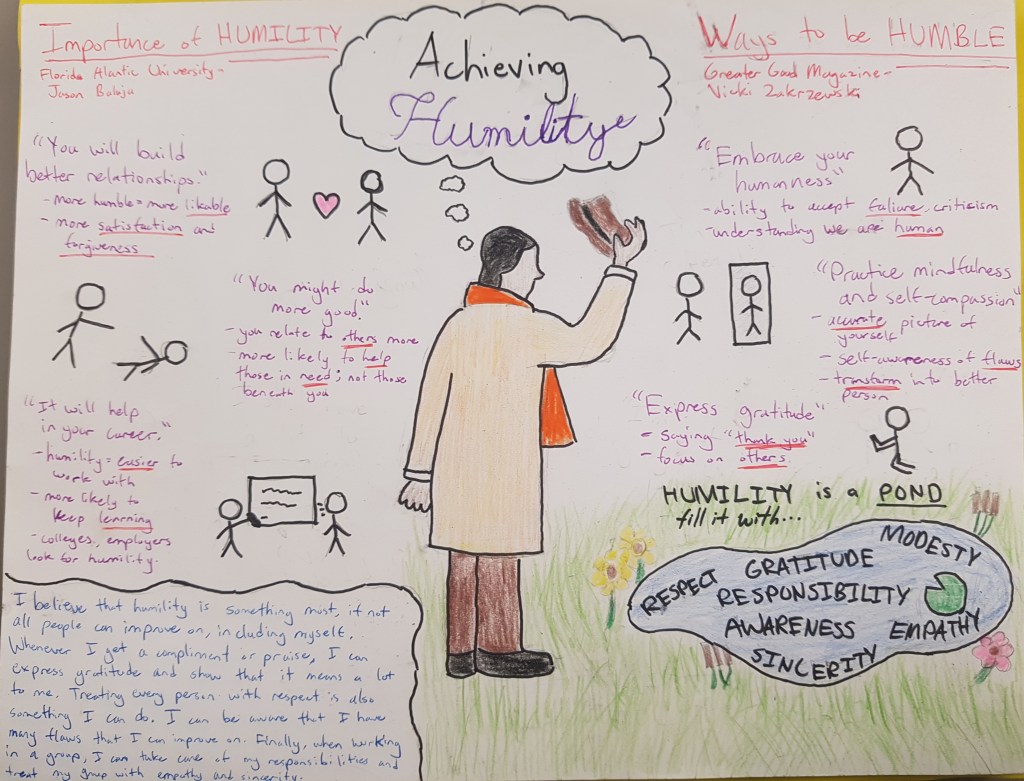 Importance of HUMILITY
Florida Alantic University-
Jason Balaju
"You will build
better relationships."
- more humble = more likable
- more satisfaction and
forgiveness
"You might do
more good."
- you relate to others more
- more likely to help
those in need; not those
beneath you
"It will help
in your career."
- humility = easier to
work with
- more likely to
keep learning
- colleges, employers
look for humility.
Achieving
Humility
Ways to be HUMBLE
Greater Good Magazine-
Vicki Zakrzewski
"Embrace your
humanness"
- ability to accept faliure, criticism
- understanding we are human
"Practice mindfulness
and self-compassion"
- accurate picture of
yourself
- self-awareness of flaws
- transform into better
person
"Express gratitude"
- saying "thank you"
- focus on others
HUMILITY is a POND
fill it with...
MODESTY
RESPECT GRATITUDE
RESPONSIBILITY
AWARENESS EMPATHY
SINCERITY
I believe that humility is something most, if not
all people can improve on, including myself.
Whenever I get a compliment or praise, I can
express gratitude and show that it means a lot
to me. Treating every person with respect is also
something I can do. I can be aware that I have
many flaws that I can improve on. Finally, when working
in a group, I can take care of my responsibilities and
treat my group with empathy and sincerity.